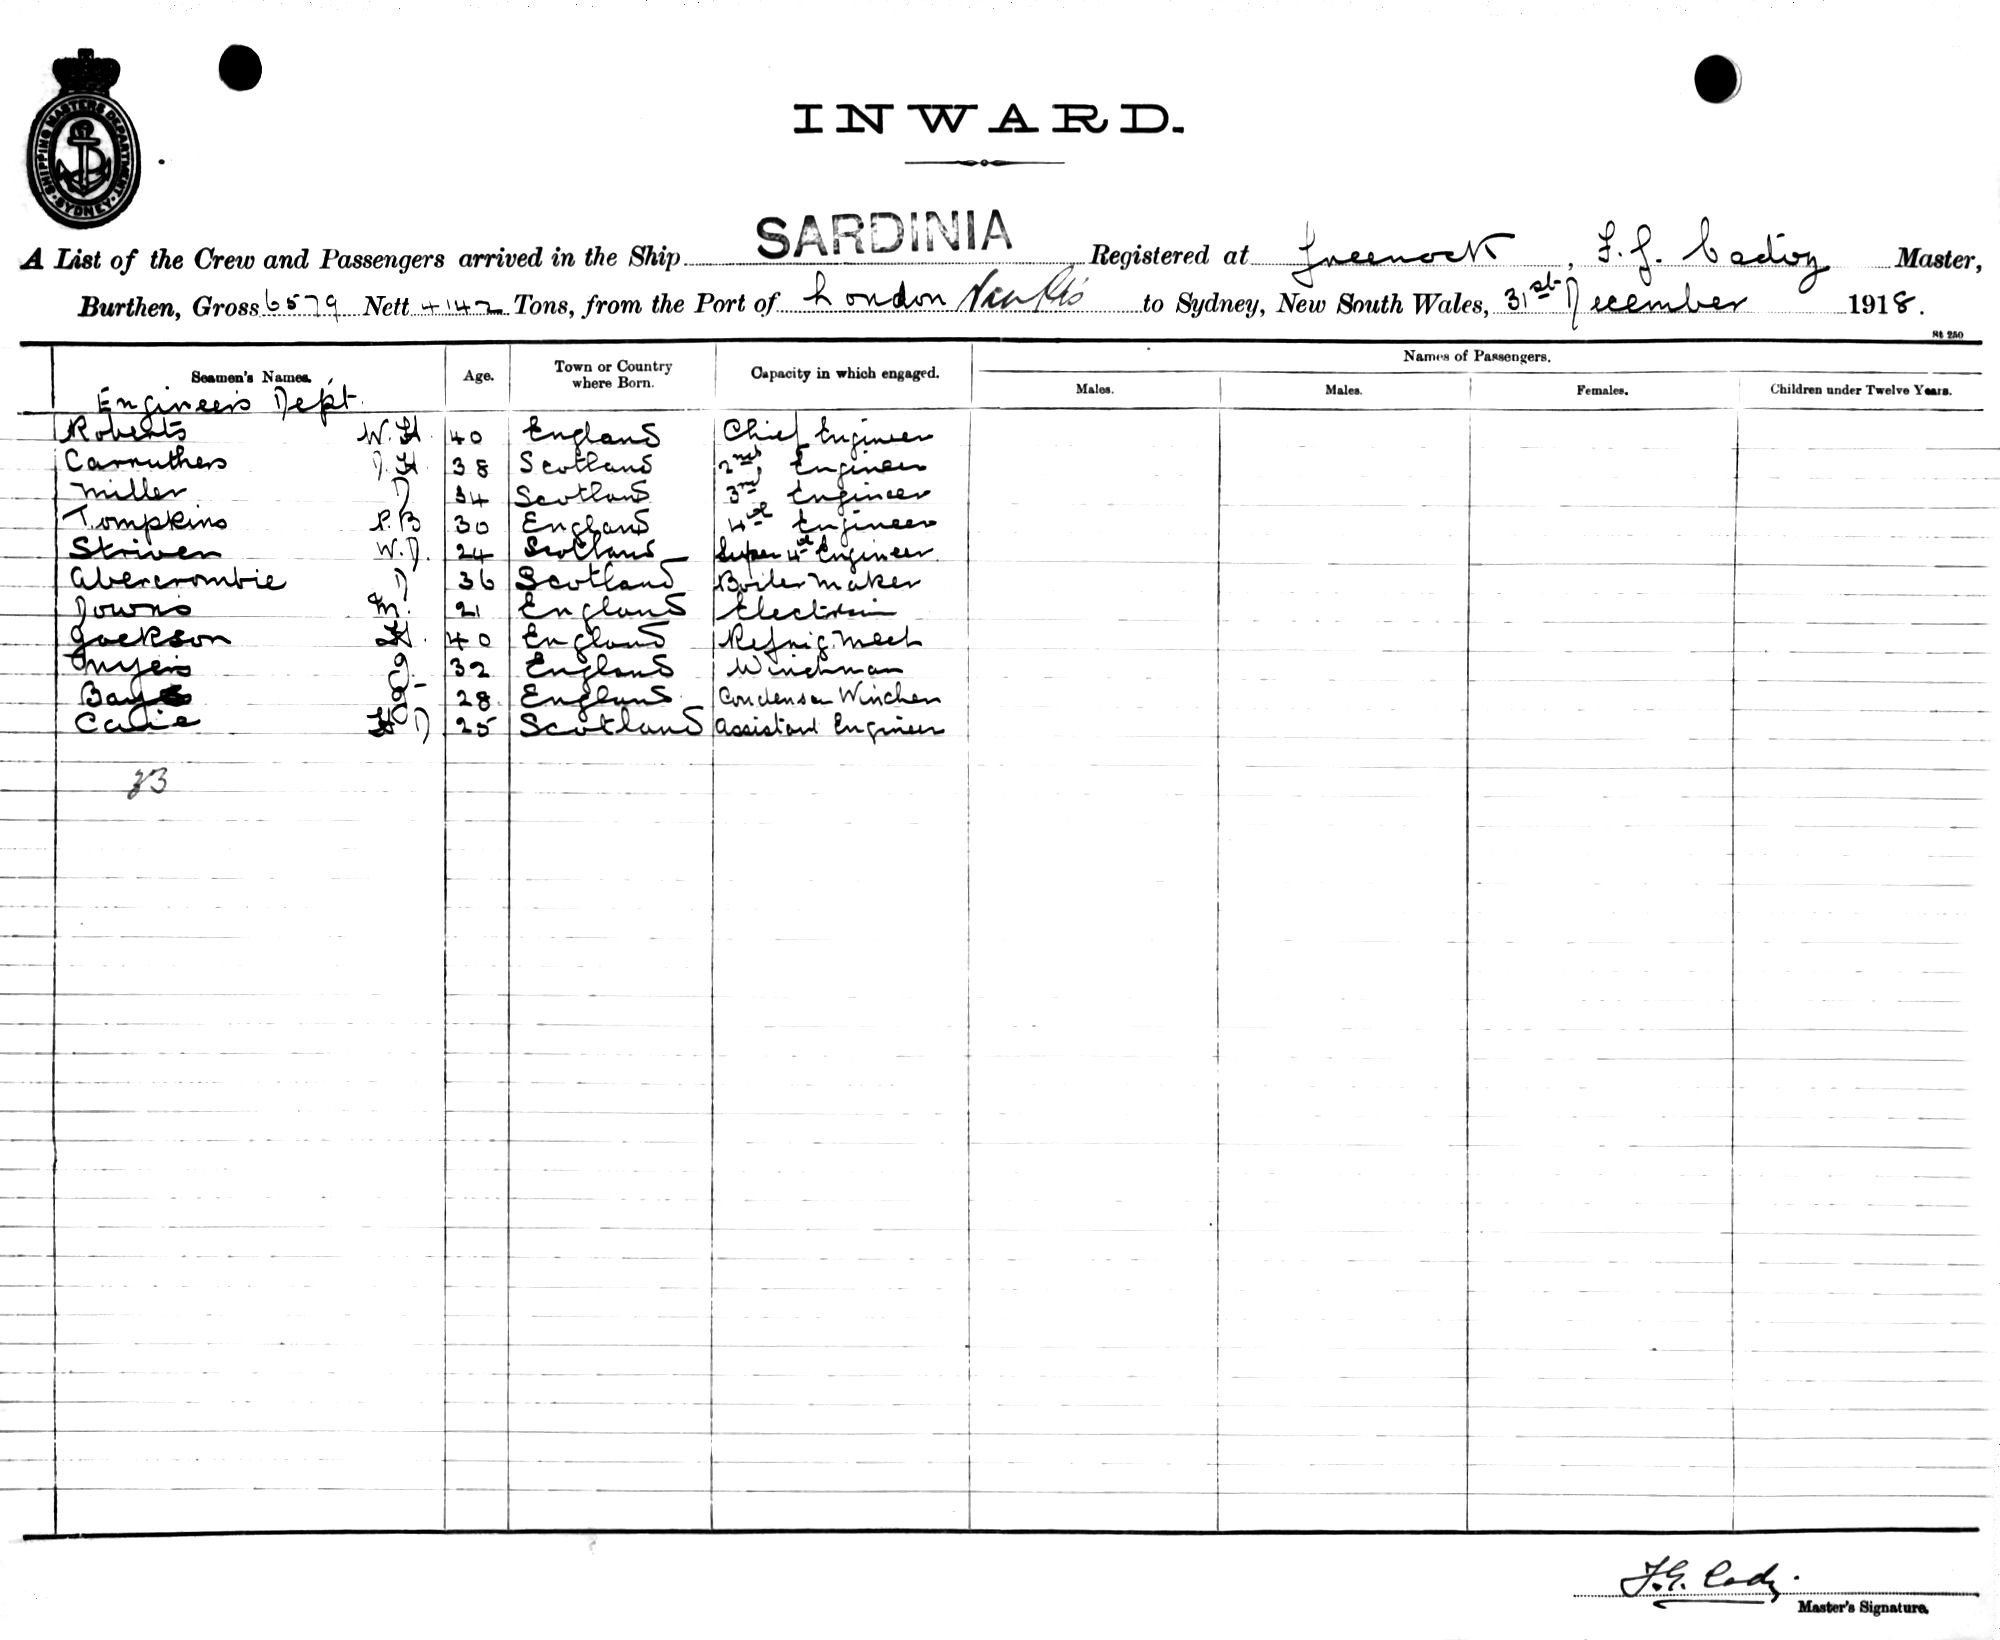 SHIPPING MASTERS DEPARTMENT
SYDNEY
INWARD.
A List of the Crew and Passengers arrived in the Ship SARDINIA Registered at Greenock, F. G. Cadiz Master,
Burthen, Gross 6579 Nett 4142 Tons, from the Port of London to Sydney, New South Wales, 31st December 1918.
St 250
Seamen's Names. Age. Town or Country where Born. Capacity in which engaged. Names of Passengers.
Males. Males. Females. Children under Twelve Years.
Engineers Dept.
Roberts W. H. 40 England Chief Engineer
Carruthers D. H. 38 Scotland 2nd Engineer
Miller D 34 Scotland 3rd Engineer
Tompkins P. B 30 England 4th Engineer
Striven W. D. 24 Scotland Super 4th Engineer
Abercrombie D 36 Scotland Boiler maker
Downs M. 21 England
Jackson H. 40 England Refrig. Mech
Myers G. 32 England Winchman
28 England Condenser Winches
H D 25 Scotland Assistant Engineer
Master's Signature.